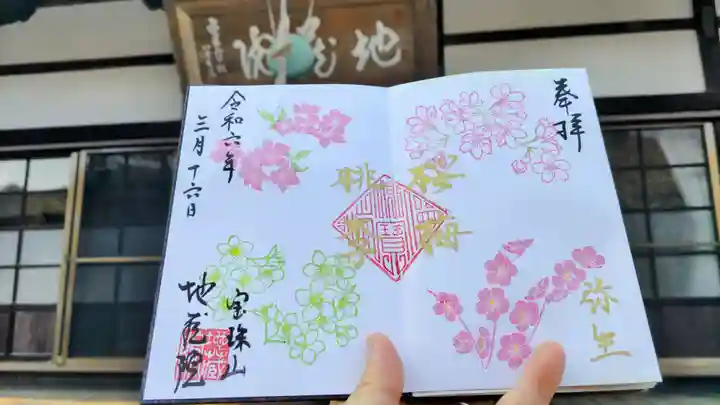 地蔵院
奉拝
桜梅
桃李
弥生
令和六年
三月十六日
宝珠山
地蔵院